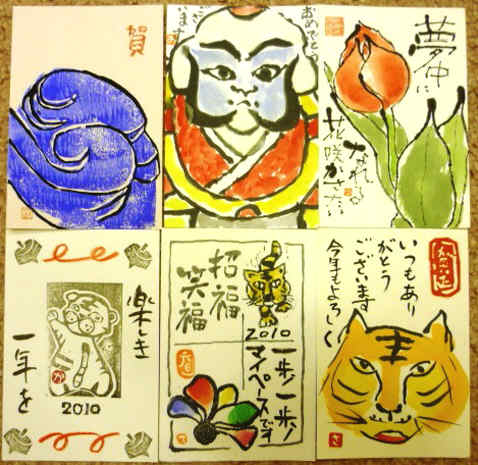 賀
おめでとう
ございます
夢中に
なれる
花咲か
楽しき
一年を
か
2010
招福
笑福
2010
一歩一歩!
マイペースです
いつもあり
がとう
ございます
今年もよろしく